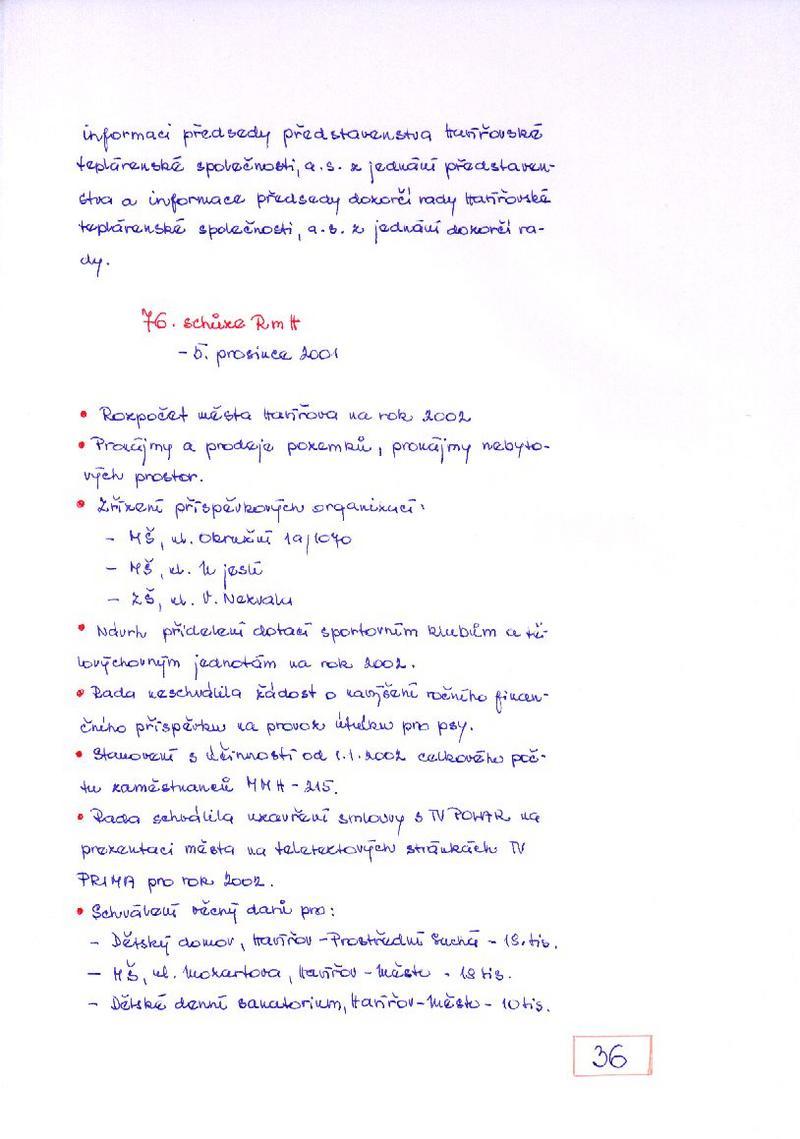 informaci předsedy představenstva Havířovské
teplárenské společnosti, a.s. z jednání představen-
stva a informace předsedy dozorčí rady Havířovské
teplárenské společnosti, a.s. z jednání dozorčí ra-
dy.
76. schůze RmH
- 5. prosince 2001
• Rozpočet města Havířova na rok 2002
• Pronájmy a prodeje pozemků, pronájmy nebyto-
vých prostor.
• Zřízení příspěvkových organizací:
- MŠ, ul. Okružní 19/1070
- MŠ, ul. U jeslí
- ZŠ, ul. V. Nezvala
• Návrh přidelení dotací sportovním klubům a tě-
lovýchovným jednotám na rok 2002.
• Rada neschválila žádost o navýšení ročního finan-
čního příspěvku na provoz útulku pro psy.
• Stanovení s účinností od 1.1.2002 celkového poč-
tu zaměstnanců MMH - 215.
• Rada schválila uzavření smlouvy s TV POLAR na
prezentaci města na teletextových stránkách TV
PRIMA pro rok 2002.
• Schválení věcný darů pro:
- Dětský domov, Havířov - Prostřední Suchá - 19. tis.
- MŠ, ul. Mozartova, Havířov - Město - 19 tis.
- Dětské denní sanatorium, Havířov-Město - 10 tis.
36